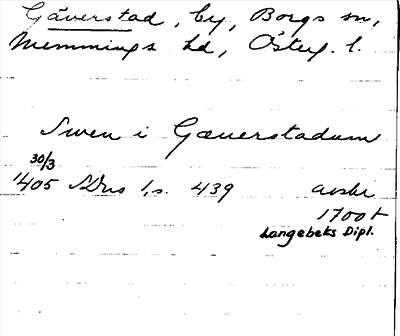 Gäverstad, by, Borgs sn,
Memmings hd, Östergl. l.
Swen i Gæuerstadum
30/3
1405 SDns 1, s. 439 avskr
1700t
Langebeks Dipl.